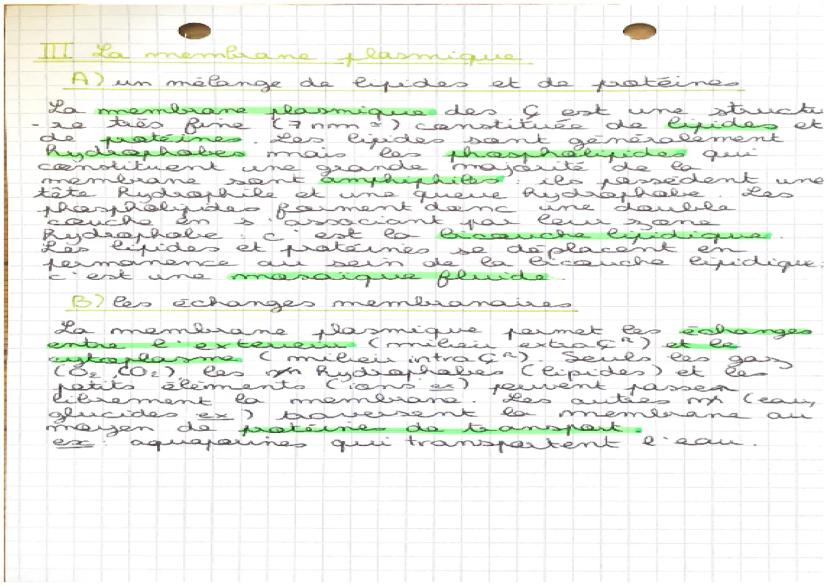 III La membrane plasmique
A) un mélange de lipides et de protéines
La membrane plasmique des Ç est une structu
-re très fine (7 nm ≈) constituée de lipides et
de protéines. Les lipides sont généralement
hydrophobes mais les phospholipides qui
constituent une grande majorité de la
membrane sont amphiphiles : ils possèdent une
tête hydrophile et une queue hydrophobe. Les
phospholipides forment donc une double
couche en s'associant par leur zone
hydrophobe : c'est la bicouche lipidique.
Les lipides et protéines se déplacent en
permanence au sein de la bicouche lipidique :
c'est une mosaïque fluide.
B) les échanges membranaires
La membrane plasmique permet les échanges
entre l'extérieur (milieu extraÇʳ) et le
cytoplasme (milieu intraÇʳ). Seuls les gaz
(O₂, CO₂), les hydrophobes (lipides) et les
petits éléments (ions ex) peuvent passer
librement la membrane. Les autres (eau,
glucides ex) traversent la membrane au
moyen de protéines de transport.
ex : aquaporines qui transportent l'eau.